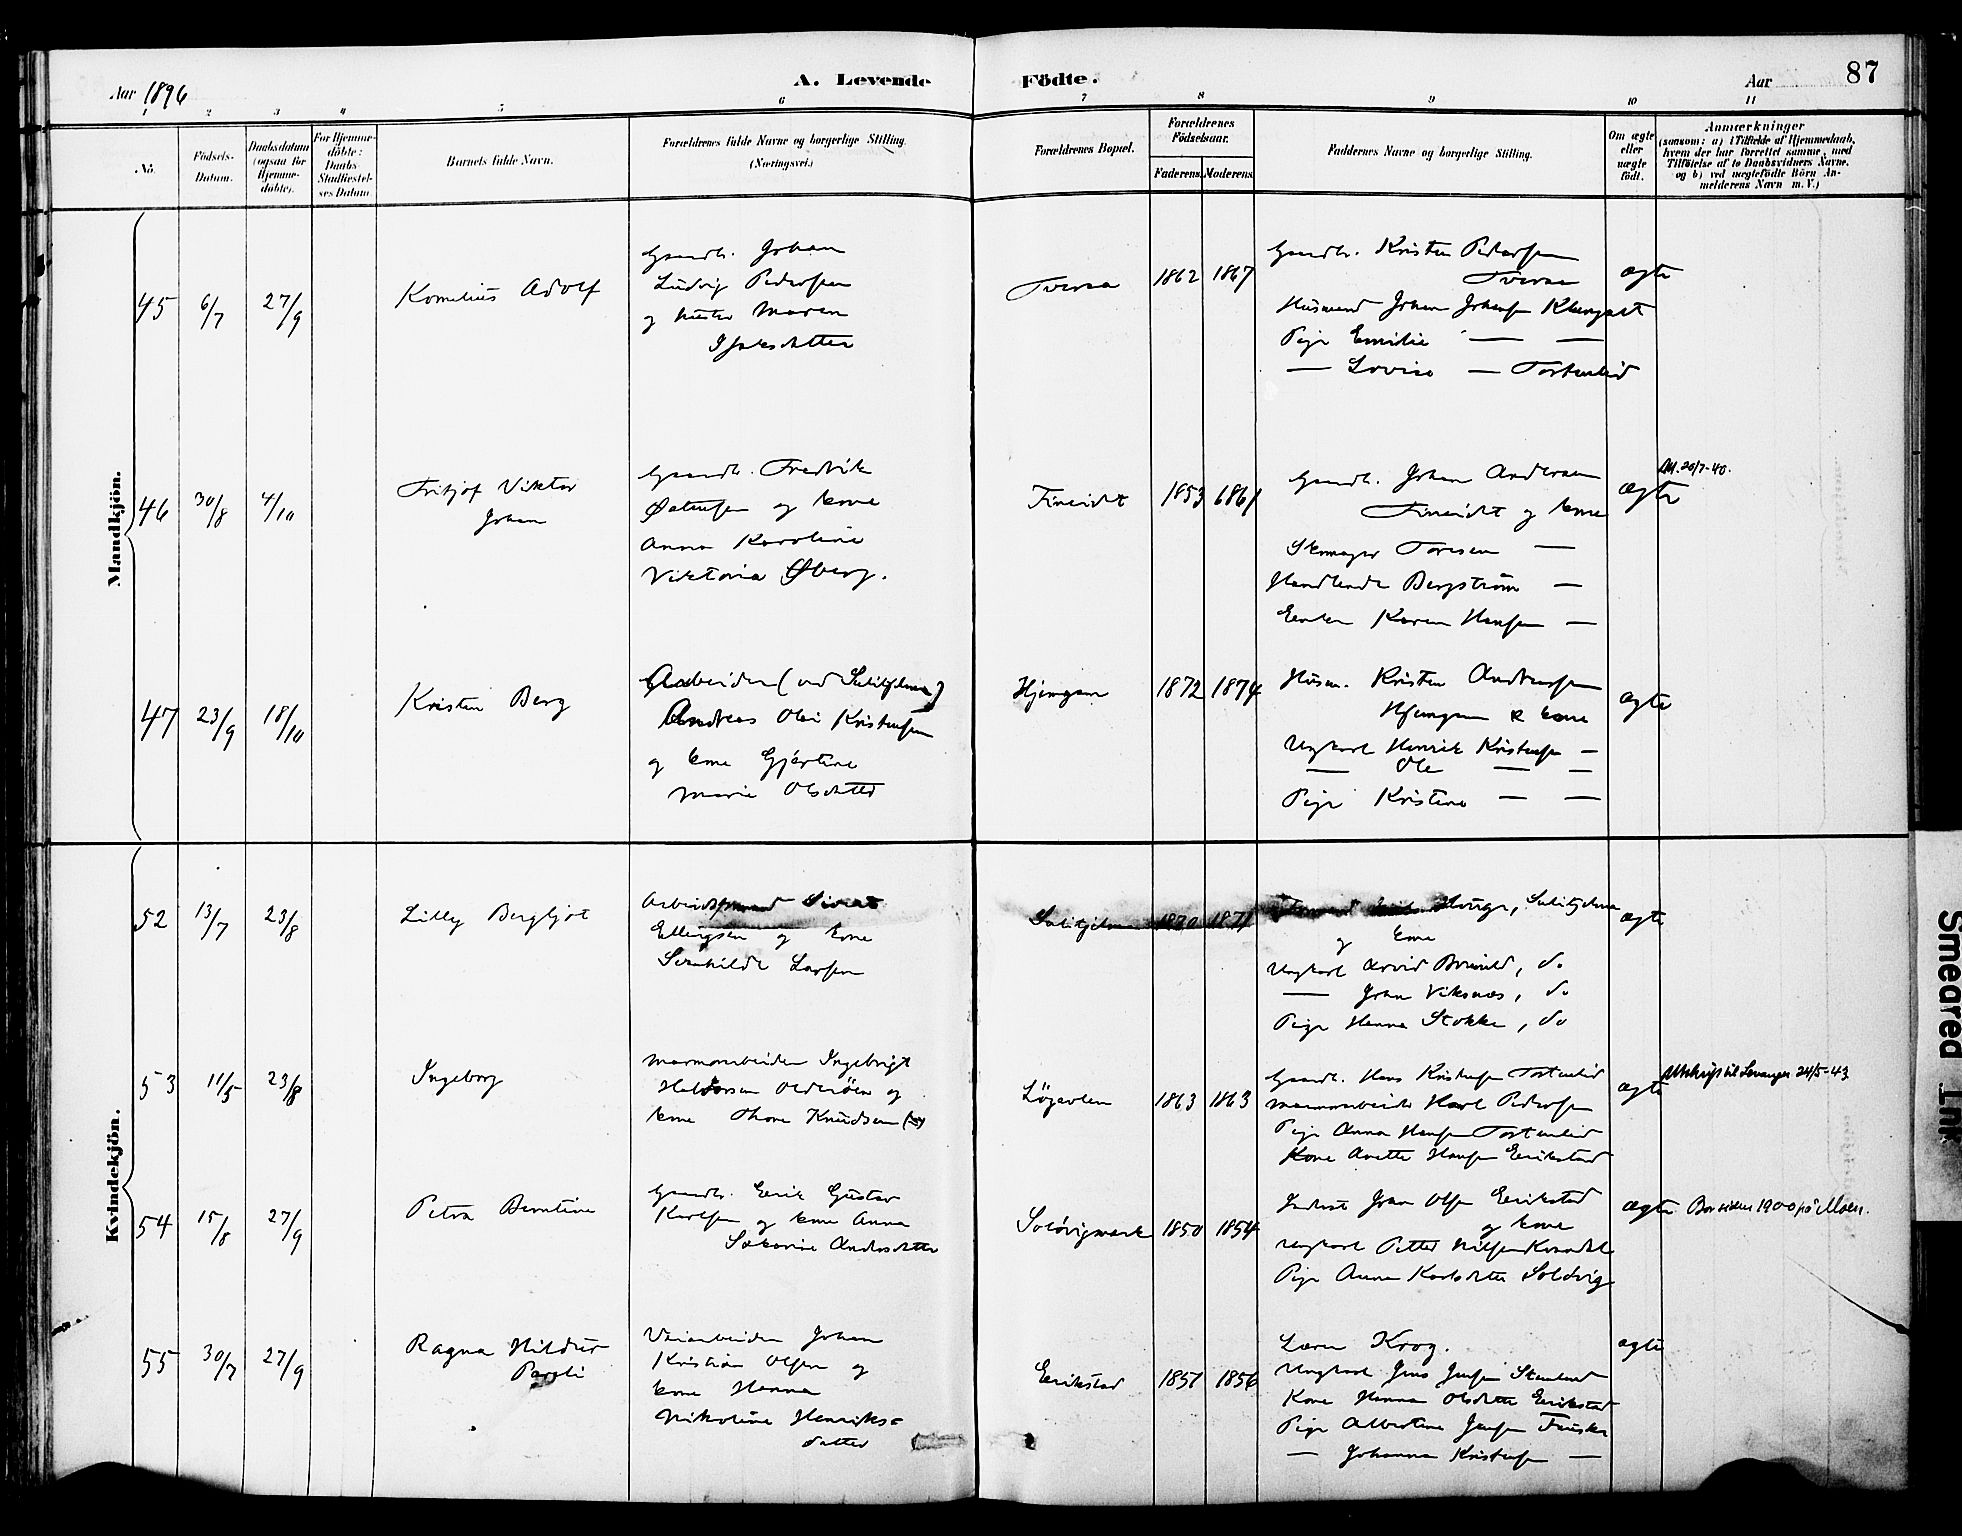 Aar 1896
A. Levende Födte.
Aar
87
1 2 3 4 5 6 7 8 9 10 11
No.
Födsels-Datum.
Daabsdatum (ogsaa for Hjemme-döbte).
For Hjemme-döbte: Daabs-Stadfæstelses Datum
Barnets fulde Navn.
Forældrenes fulde Navne og borgerlige Stilling. (Næringsvei.)
Forældrenes Bopæl.
Forældrenes Födselsaar.
Faderens. Moderens.
Faddernes Navne og borgerlige Stilling.
Om ægte eller uægte födt.
Anmærkninger
(saasom: a) i Tilfælde af Hjemmedaab,
hvem der har forrettet samme, med
Tilföielse af to Daabsvidners Navne,
og b) ved uægtefödte Börn An-
melderens Navn m. V.)
Mandkjön.
45 6/7 27/9
Kornelius Adolf
Gaardb. Johan
Ludvig Pedersen
og hustru Maren
Isaksdatter
Tveraa 1862 1867
Gaardb. Kristen Pedersen
Tveraa
Husmand Johan Johansen Klungset
Pige Emilie — —
— Lovise — Tortenlid
ægte
46 30/8 4/10
Fritjof Viktor
Johan
Gaardb. Fredrik
Østensen og kone
Anna Karoline
Viktoria Øberg.
Fineidt 1853 1861
Gaardb. Johan Andersen
Fineidt og kone
Skomager Toresen —
Handlende Bergström —
Enken Karen Hansen —
ægte
20/7-40.
47 23/9 18/10
Kristen Berg
Arbeider (ved Sulitjelma)
Andreas Olai Kristensen
og kone Gjertine
Marie Olsdatter
Hjemgam 1872 1874
Husm. Kristen Andreassen
Hjemgam & kone
Ungkarl Henrik Kristensen —
— Ole — —
Pige Kristine — —
ægte
Kvindekjön.
52 13/7 23/8
Lilly Bergljot
Arbeidsformand Sivert
Ellingsen og kone
Larsen
Sulitjelma 1870 1871
Hauge, Sulitjelma
og kone
Ungkarl Arvid , do
— Johan Viksnæs, do
Pige Hanna Stokke, do
ægte
53 11/5 23/8
Ingeborg
Marmorarbeider Ingebrigt
Haldorsen Olderöen og
kone Thone Knudsen
Lögavlen 1863 1863
Gaardb. Hans Kristensen Tortenlid
Marmorarbeider Karl Pedersen
Pige Anna Hansen Tortenlid
Kone Anette Hansen Erikstad
ægte
Utskrift til Levanger 24/5-43
54 15/8 27/9
Petra Berntine
Gaardb. Erik Gustav
Karlsen og kone Anna
Sakarine Andersdatter
Solövigmark 1850 1854
Inderst Johan Olsen Erikstad
og kone
Ungkarl Petter Nilsen Kvandal
Pige Anna Karlsdatter Solövig
ægte
Bor siden 1900 på Moen.
55 30/7 27/9
Ragna Hildur
Paroli
Veiarbeider Johan
Kristian Olsen og
kone Hanna
Nikoline Henriks=
datter
Erikstad 1857 1856
Lærer Krog.
Ungkarl Jens Jensen Stenland
Kone Hanna Olsdatter Erikstad
Pige Albertine Jensen Fauske
— Johanna Kristensen —
ægte
Smeared Ink